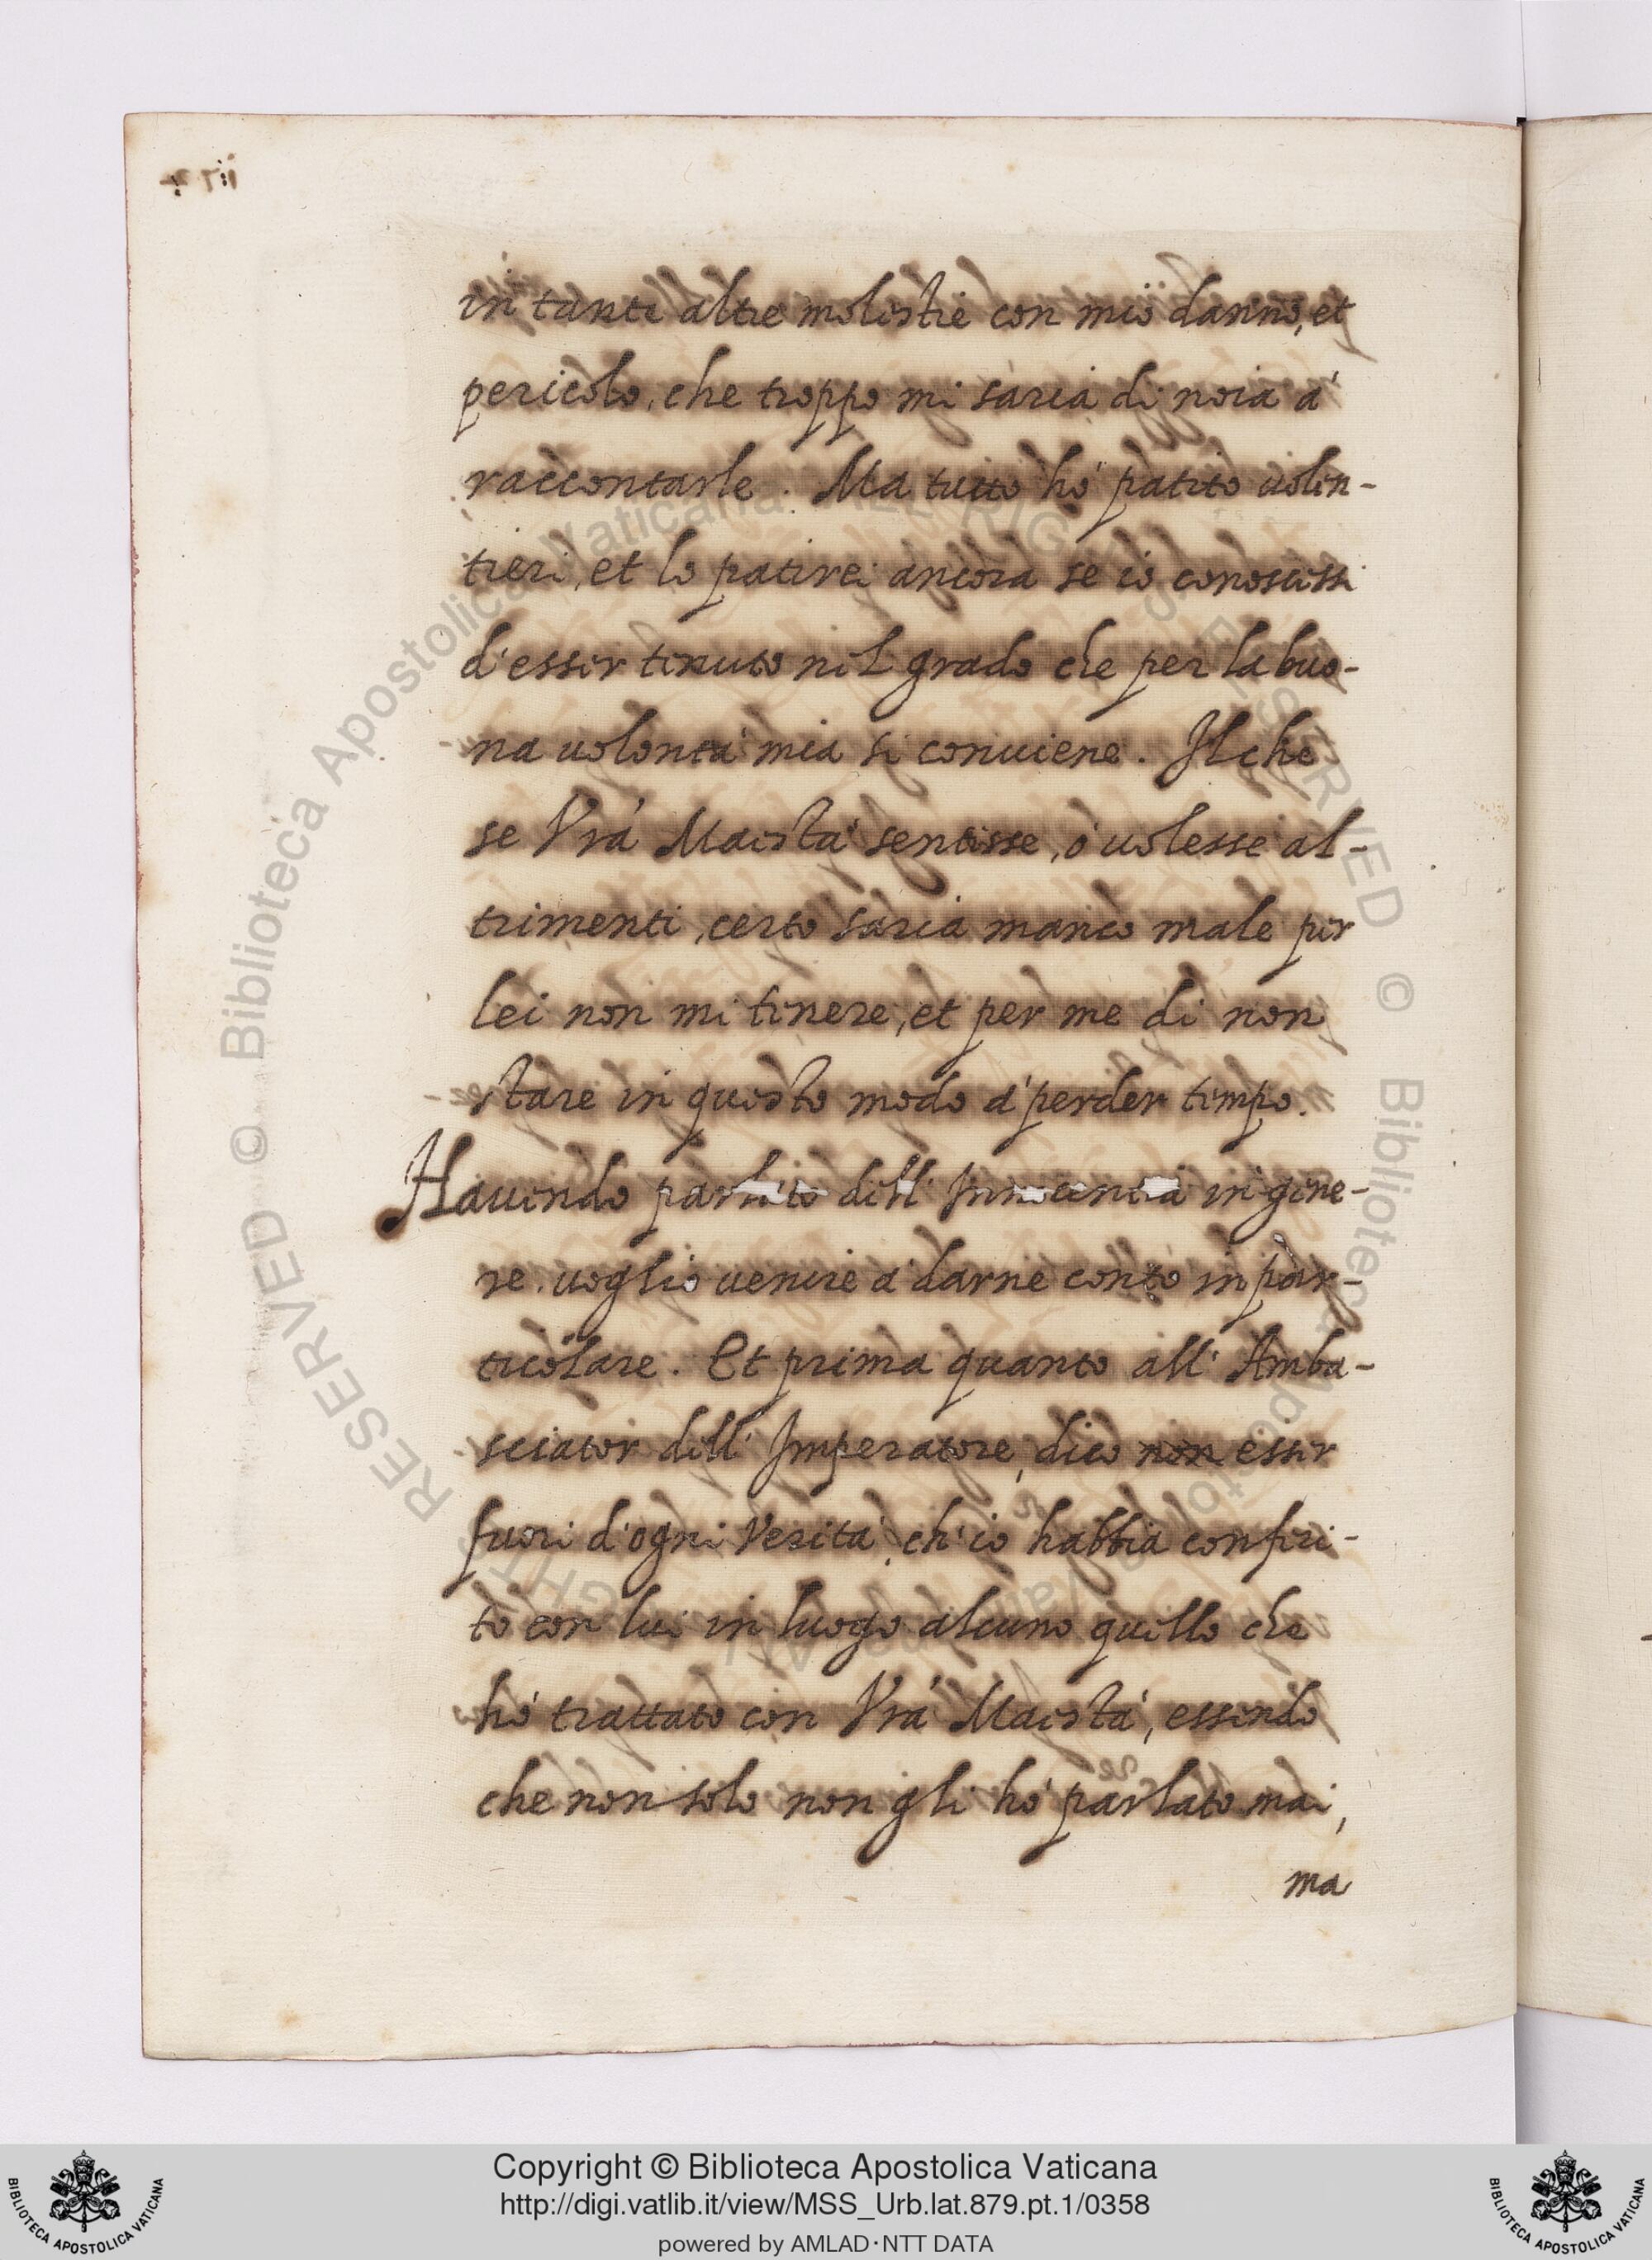 in tante altre molestie con mio danno, et
pericolo, che troppo mi saria di noia à
raccontarle. Ma tutto hò patito uolen-
tieri, et lo patirei ancora se io conoscessi
d'esser tenuto nel grado che per la buo-
na uolontà mia si conuiene. Il che
se Vrá Maestà sentisse, ò uolesse al-
trimenti, certo saria manco male per
lei non mi tenere, et per me di non
stare in questo modo à perder tempo.
Hauendo parlato dell' Innocentia in gene-
re. uoglio uenire à darne conto in par-
ticolare. Et prima quanto all' Amba-
sciator dell' Imperatore, dico non esser
fuori d'ogni Verità, ch'io habbia conferi-
to con lui in luogo alcuno quello che
hò trattato con Vrá Maestà, essendo
che non solo non gli hò parlato mai,
ma
© Biblioteca Apostolica Vaticana ALL RIGHTS RESERVED © Biblioteca Apostolica Vaticana ALL RIGHTS RESERVED
Copyright © Biblioteca Apostolica Vaticana
http://digi.vatlib.it/view/MSS_Urb.lat.879.pt.1/0358
powered by AMLAD・NTT DATA
BIBLIOTECA APOSTOLICA VATICANA
BIBLIOTECA APOSTOLICA VATICANA